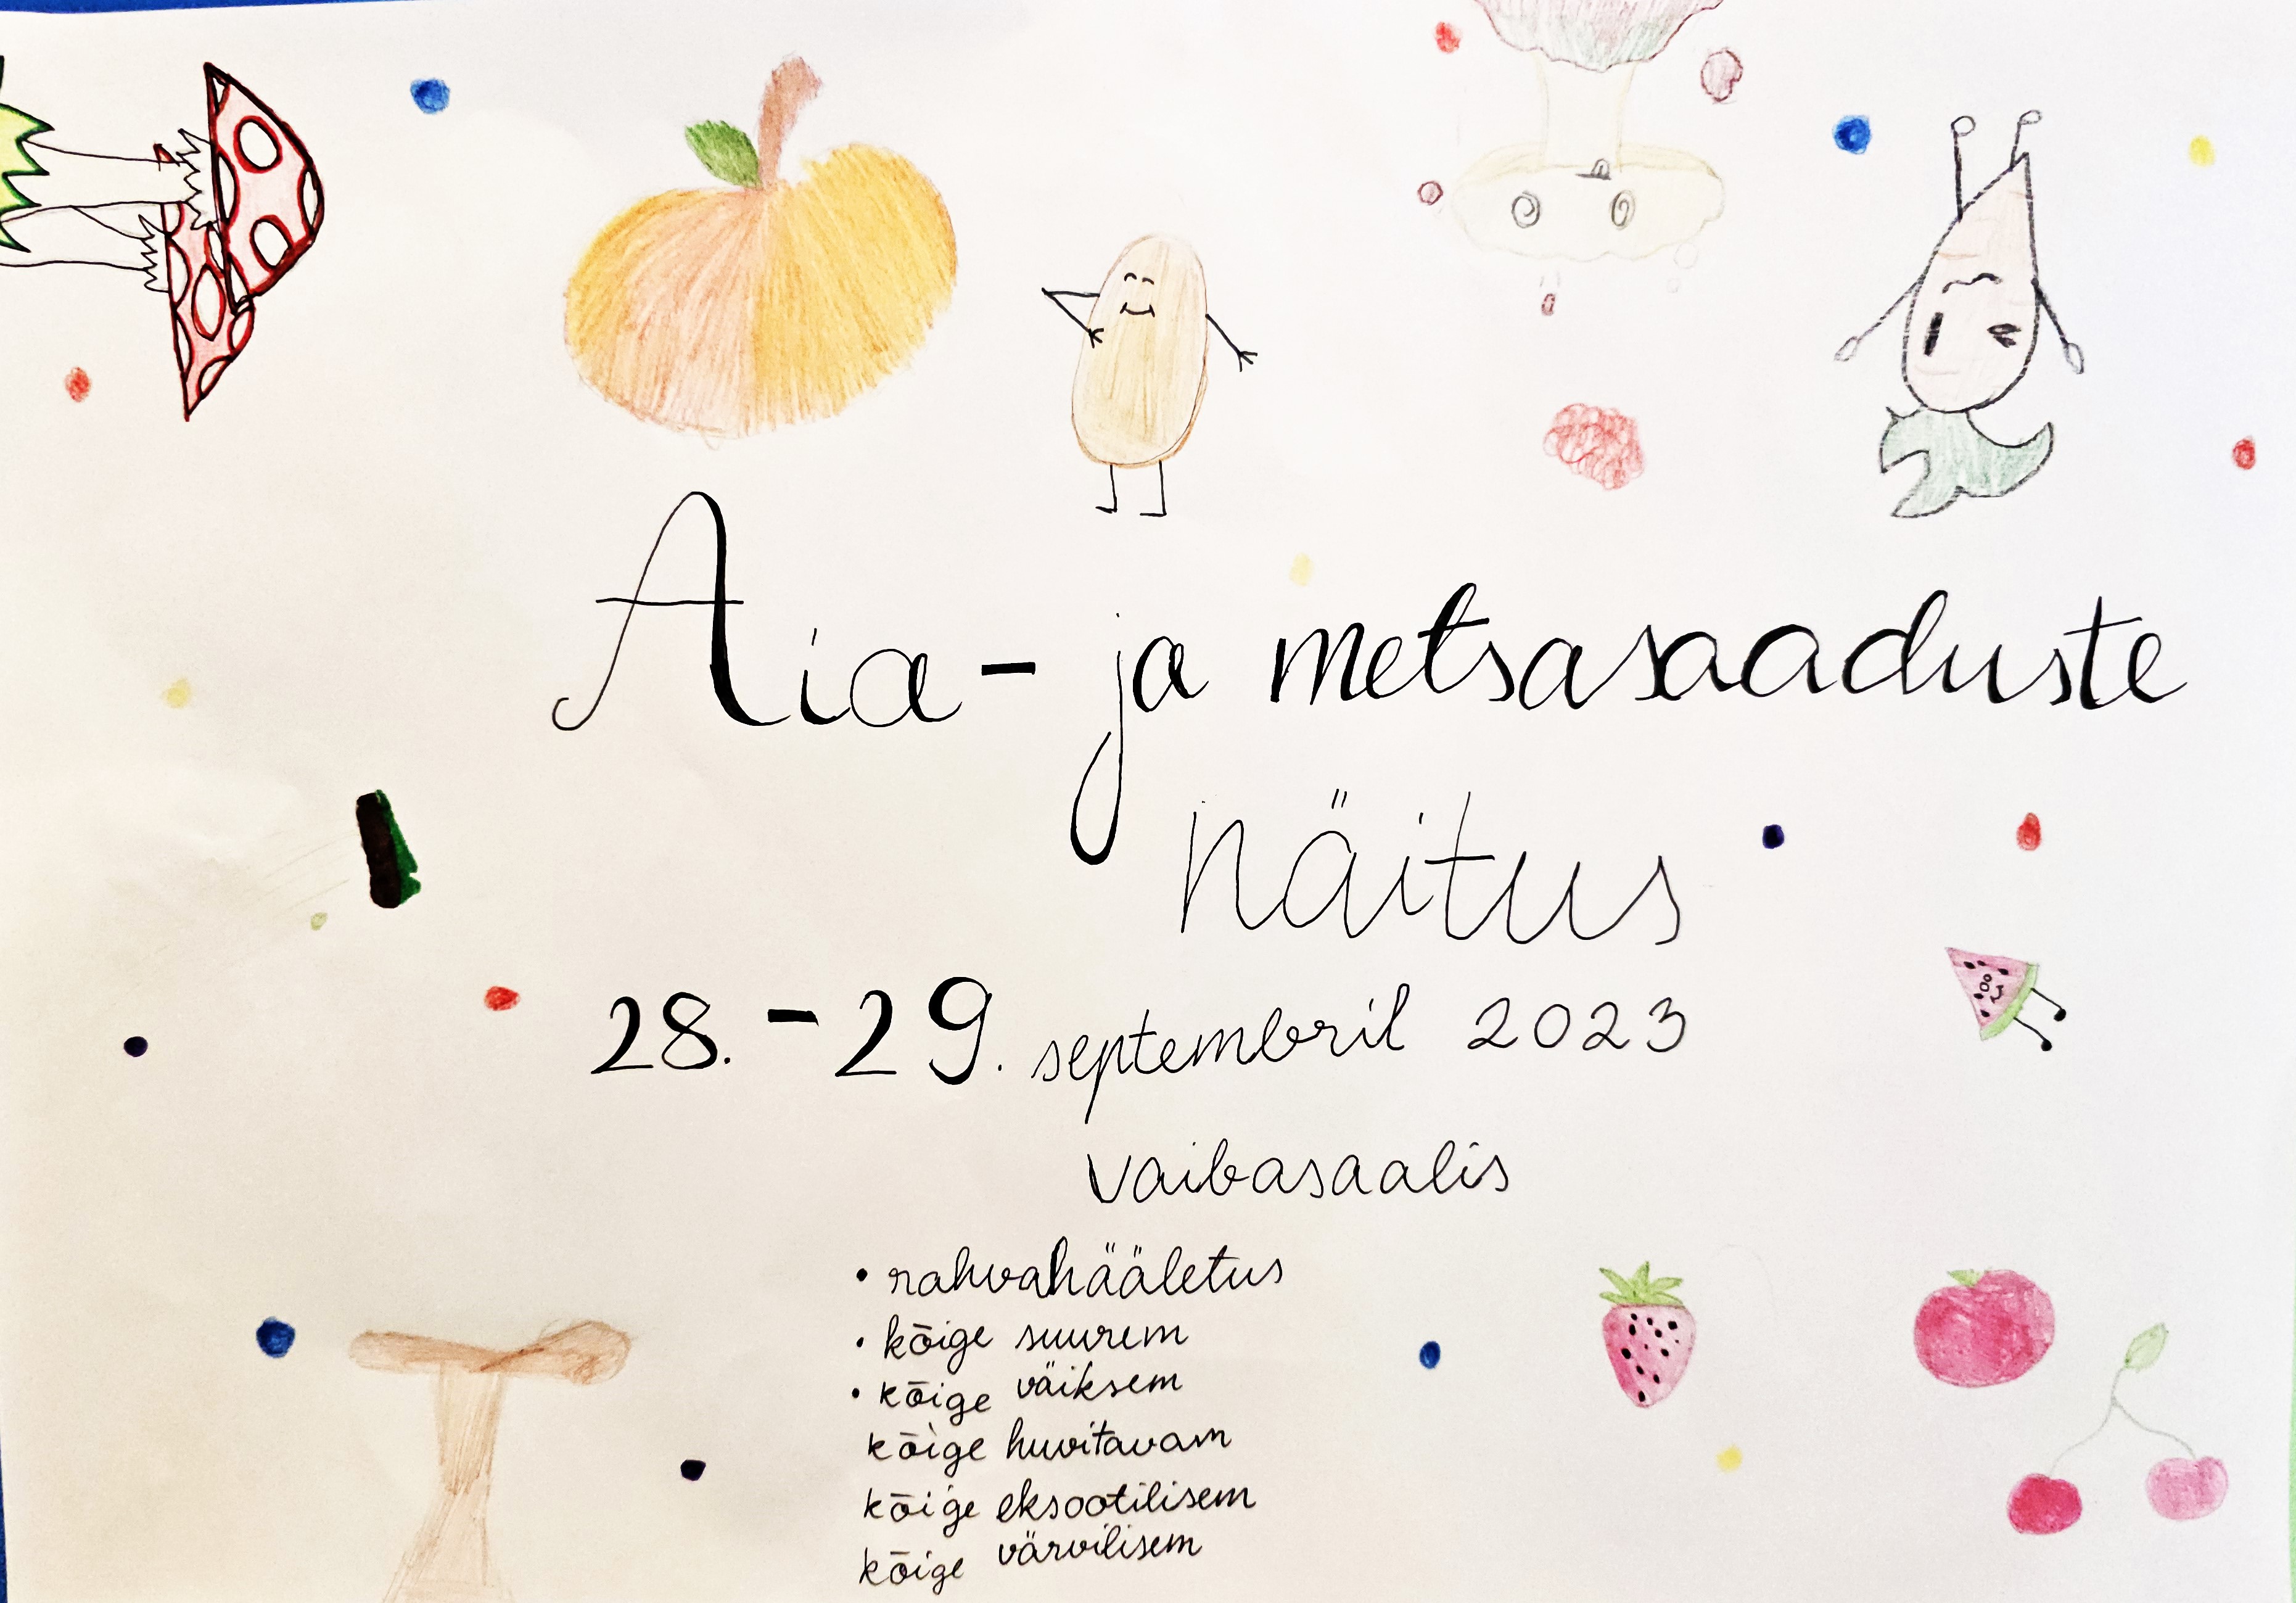 Aia- ja metsasaaduste
näitus
28. - 29. septembril 2023
vaibasaalis
• rahvahääletus
• kõige suurem
• kõige väiksem
kõige huvitavam
kõige eksootilisem
kõige värvilisem